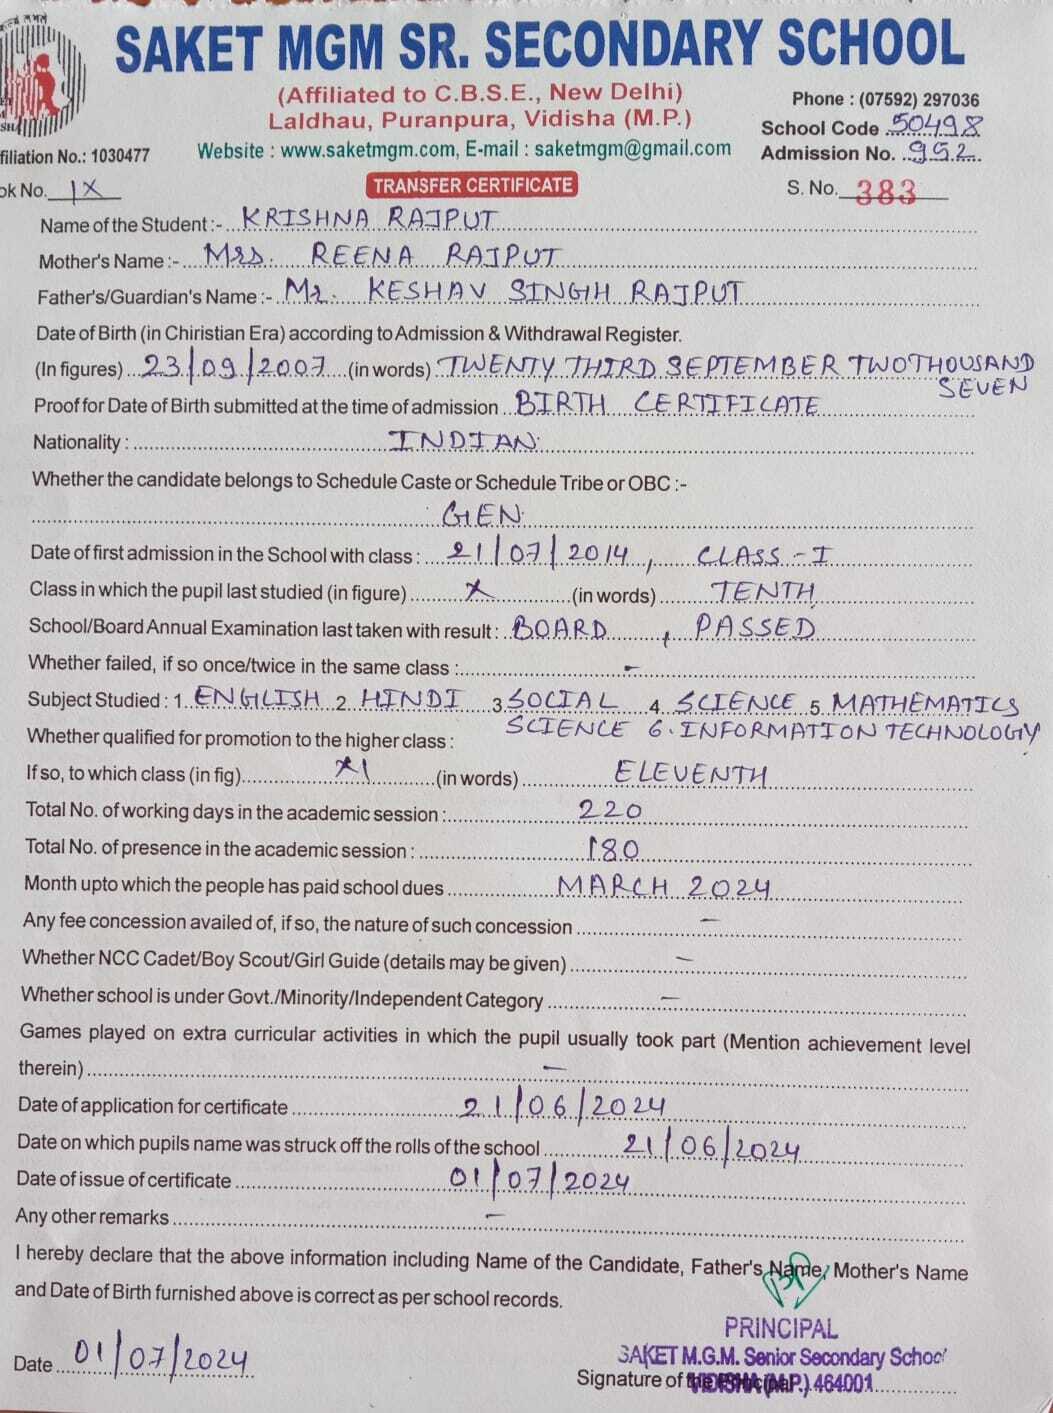 SAKET MGM SR. SECONDARY SCHOOL
(Affiliated to C.B.S.E., New Delhi)
Laldhau, Puranpura, Vidisha (M.P.)
Website : www.saketmgm.com, E-mail : saketmgm@gmail.com
Phone : (07592) 297036
School Code 50498
Admission No. 952
filiation No.: 1030477
ok No. IX
TRANSFER CERTIFICATE
S. No. 383
Name of the Student :- KRISHNA RAJPUT
Mother's Name :- Mrs. REENA RAJPUT
Father's/Guardian's Name :- Mr. KESHAV SINGH RAJPUT
Date of Birth (in Chiristian Era) according to Admission & Withdrawal Register.
(In figures) 23/09/2007 (in words) TWENTY THIRD SEPTEMBER TWO THOUSAND
SEVEN
Proof for Date of Birth submitted at the time of admission BIRTH CERTIFICATE
Nationality : INDIAN
Whether the candidate belongs to Schedule Caste or Schedule Tribe or OBC :-
GEN
Date of first admission in the School with class : 21/07/2014, CLASS - I
Class in which the pupil last studied (in figure) X (in words) TENTH
School/Board Annual Examination last taken with result : BOARD, PASSED
Whether failed, if so once/twice in the same class : -
Subject Studied : 1 ENGLISH 2 HINDI 3 SOCIAL 4. SCIENCE 5. MATHEMATICS
SCIENCE 6. INFORMATION TECHNOLOGY
Whether qualified for promotion to the higher class :
If so, to which class (in fig) XI (in words) ELEVENTH
Total No. of working days in the academic session : 220
Total No. of presence in the academic session : 180
Month upto which the people has paid school dues MARCH 2024
Any fee concession availed of, if so, the nature of such concession -
Whether NCC Cadet/Boy Scout/Girl Guide (details may be given) -
Whether school is under Govt./Minority/Independent Category -
Games played on extra curricular activities in which the pupil usually took part (Mention achievement level
therein) -
Date of application for certificate 21/06/2024
Date on which pupils name was struck off the rolls of the school 21/06/2024
Date of issue of certificate 01/07/2024
Any other remarks -
I hereby declare that the above information including Name of the Candidate, Father's Name, Mother's Name
and Date of Birth furnished above is correct as per school records.
PRINCIPAL
SAKET M.G.M. Senior Secondary School
VIDISHA (M.P.) 464001
Date 01/07/2024
Signature of the Principal